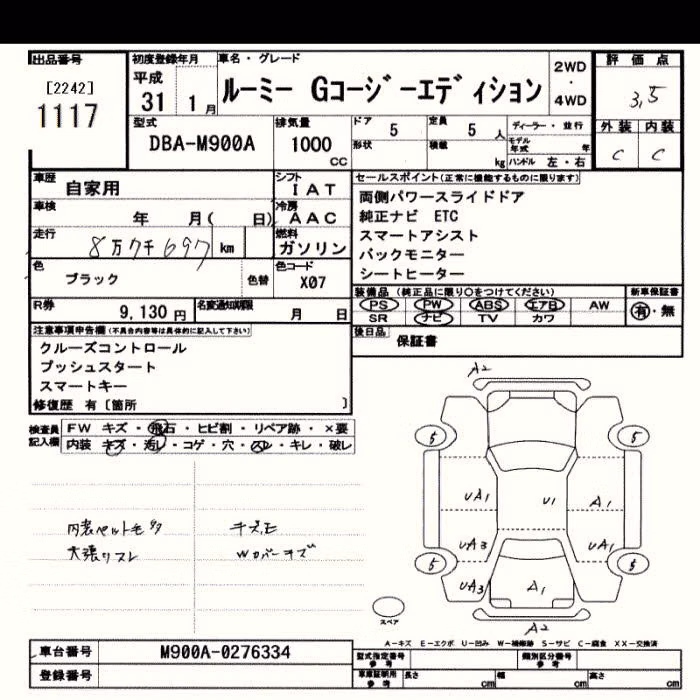 出品番号
[2242]
1117
初度登録年月
平成
31 1月
車名・グレード
ルーミー Gコージーエディション
2WD
・
4WD
評価点
3.5
外装 内装
C C
型式
DBA-M900A
排気量
1000
CC
ドア
5
定員
5 人
形状
積載
kg
ディーラー・並行
モデル年式 年
ハンドル 左・右
車歴
自家用
シフト
IAT
車検
年 月( 日)
冷房
AAC
走行
8万7千697 km
燃料
ガソリン
色
ブラック
色替
色コード
X07
R券
9,130 円
名変通知期限
月 日
セールスポイント(正常に機能するものに限ります)
両側パワースライドドア
純正ナビ ETC
スマートアシスト
バックモニター
シートヒーター
装備品(純正品に限り○をつけてください)
PS PW ABS エアB AW
SR ナビ TV カワ
新車保証書
有・無
後日品
保証書
注意事項申告欄(不具合内容等は具体的に記入して下さい)
クルーズコントロール
プッシュスタート
スマートキー
修復歴 有〔箇所 〕
検査員
記入欄
FW キズ・飛石・ヒビ割・リペア跡・×要
内装 キズ・汚レ・コゲ・穴・スレ・キレ・破レ
天張リスレ
Wカバーキズ
A2
5 5
UA1 U1 A1
UA3 UA1
5 5
UA3 A1
A2
スペア
A-キズ E-エクボ U-凹み W-補修跡 S-サビ C-腐食 XX-交換済
車台番号
M900A-0276334
登録番号
型式指定番号
参考
類別区分番号
参考
車庫証明用
参考
長さ cm
幅 cm
高さ cm